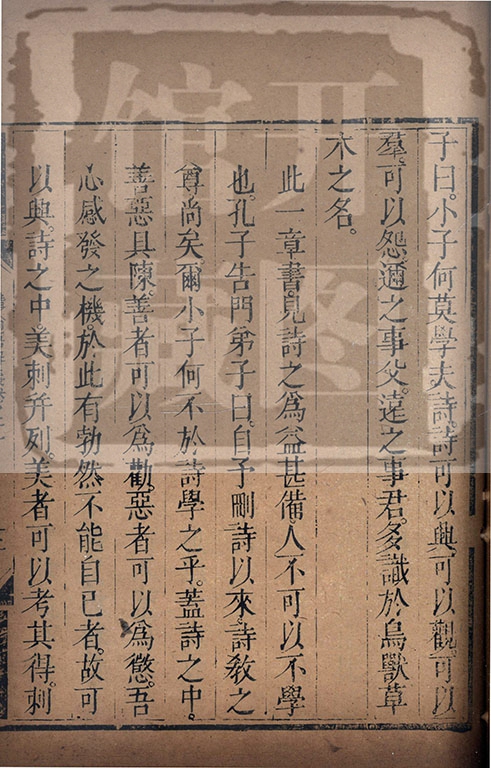 子曰。小子何莫學夫詩。詩可以興。可以觀。可以
羣。可以怨。邇之事父。遠之事君。多識於鳥獸草
木之名。
此一章書。見詩之爲益甚備。人不可以不學
也。孔子告門弟子曰。自予刪詩以來。詩教之
尊尚矣。爾小子何不於詩學之乎。蓋詩之中。
善惡具陳。善者可以爲勸。惡者可以爲懲。吾
心感發之機。於此有勃然不能自已者。故可
以興。詩之中。美刺並列。美者可以考其得。刺